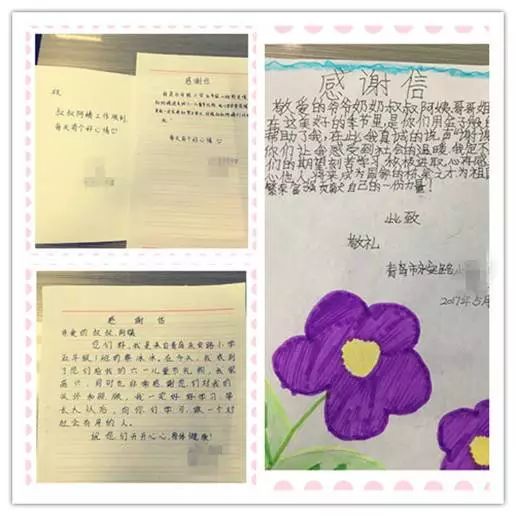 祝
叔叔阿姨工作顺利,
每天有个好心情
感谢信
每天有个好心情
感谢信
亲爱的叔叔、阿姨
您们好,我是来自青岛永安路小学
五年级1班的冰冰,在今天,我收到
了您们给我的六一儿童节礼物,我很
高兴,同时也非常感谢您们对我的
关怀和照顾,我一定好好学习,等
长大以后,向你们学习,做一个对
社会有用的人。
祝您们开开心心,身体健康!
感谢信
敬爱的爷爷奶奶叔叔阿姨哥哥姐
在这美好的季节里,是你们用
帮助了我,在此,我真诚的说声"谢谢
你们让我感受到社会的温暖,我定不
们的期望刻苦学习,积极进取,心
心他人将来成为国家的栋梁之才为祖国
繁荣富强贡献自己的一份力量!
此致
敬礼
青岛市永安路
2017年5月